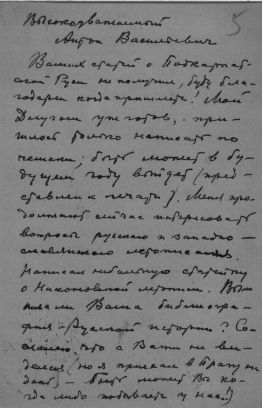 5
Высокоуважаемый
Антон Васильевич
Ваших статей о Подкарпат-
ской Руси не получил, буду бла-
годарен когда пришлете! Мой
Длугош уж готов, - при-
шлось только написать по
чешски; быть может в бу-
дущем году выйдет (пред-
ставлен к печати). Меня про-
должают сейчас интересовать
вопросы русского и западно-
славянского летописания.
Написал небольшую статейку
о Никоновской летописи. Вы
писали Вашa библиогра-
фия Русской истории? Со-
жалею что я Вами не ви-
делся, но я приехал в Прагу не
- Быть может Вы ко-
гда либо побываете у нас!)